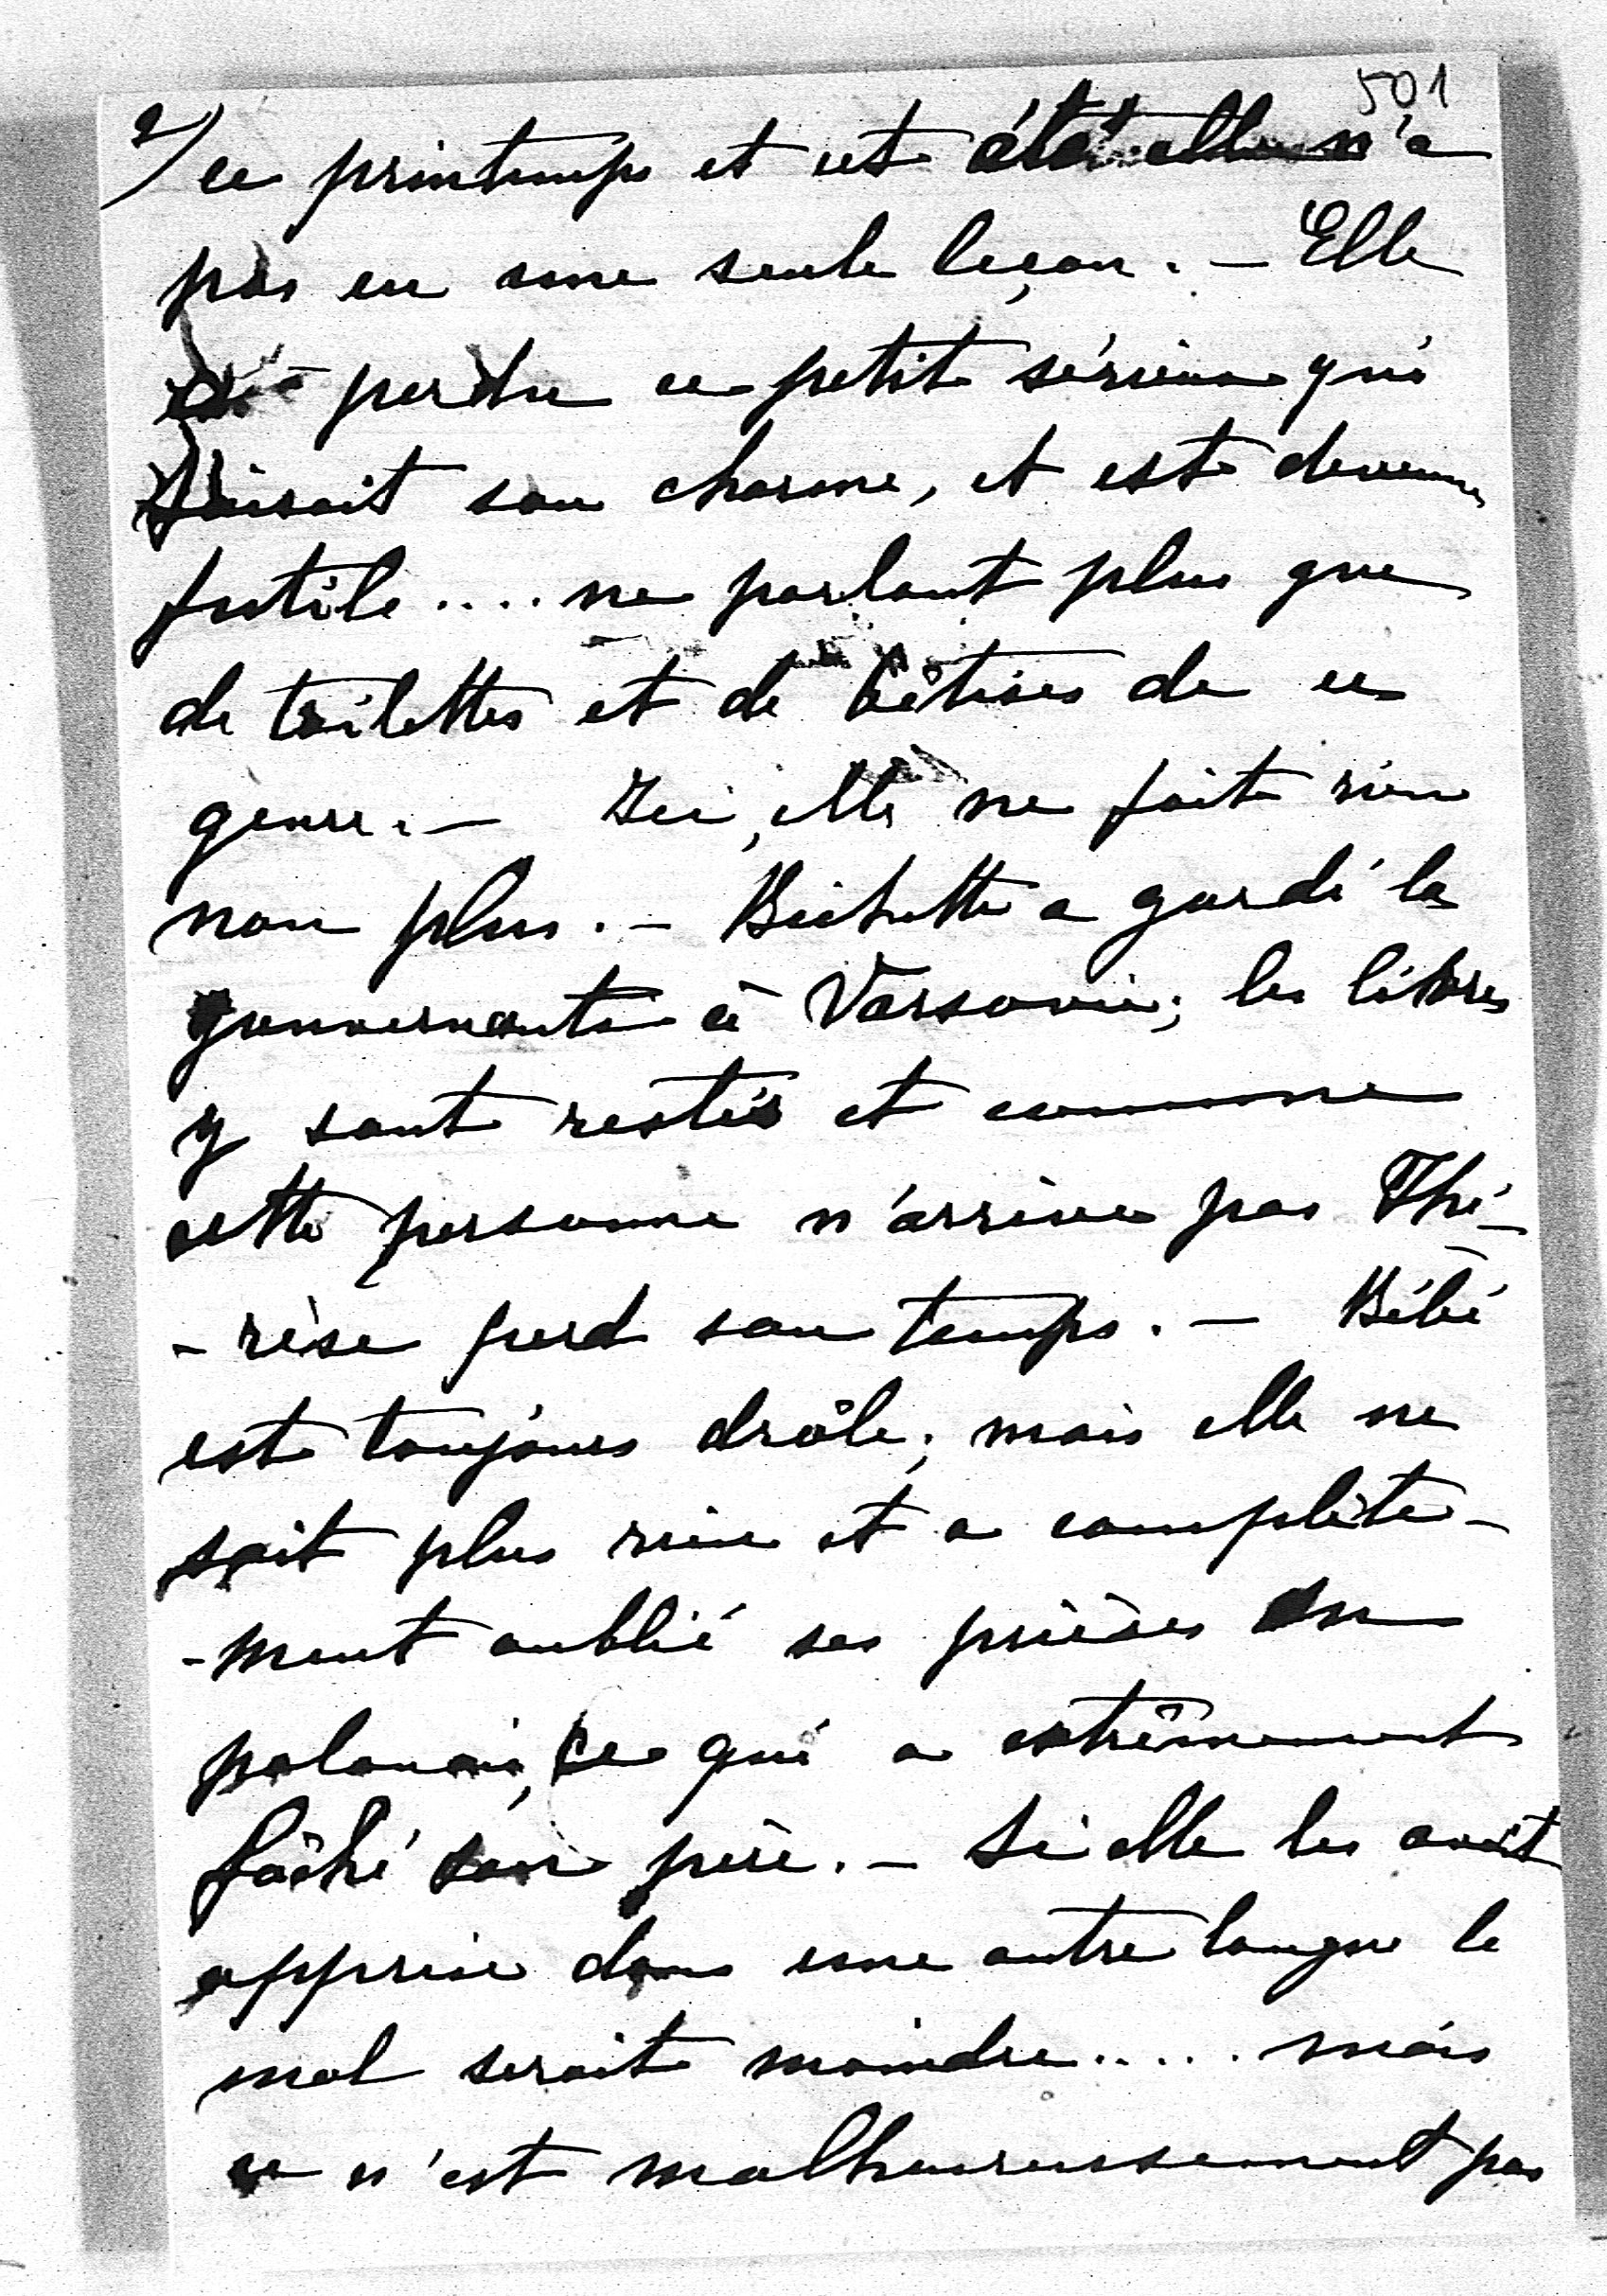 501
2/ ce printemps et cet été elle n'a
pas eu une seule leçon. — Elle
a perdu ce petit sérieux qui
faisait son charme, et est devenue
futile.... ne parlant plus que
de toilettes et de bêtises de ce
genre. — Ici, elle ne fait rien
non plus. — Bichette a gardé la
gouvernante à Varsovie; les livres
y sont restés et comme
cette personne n'arrive pas Thé-
-rèse perd son temps. — Bébé
est toujours drôle; mais elle ne
sait plus rien et a complète-
-ment oublié ses prières en
polonais, ce qui a extrêmement
fâché son père. — Si elle les avait
apprise dans une autre langue le
mal serait moindre..... mais
ce n'est malheureusement pas